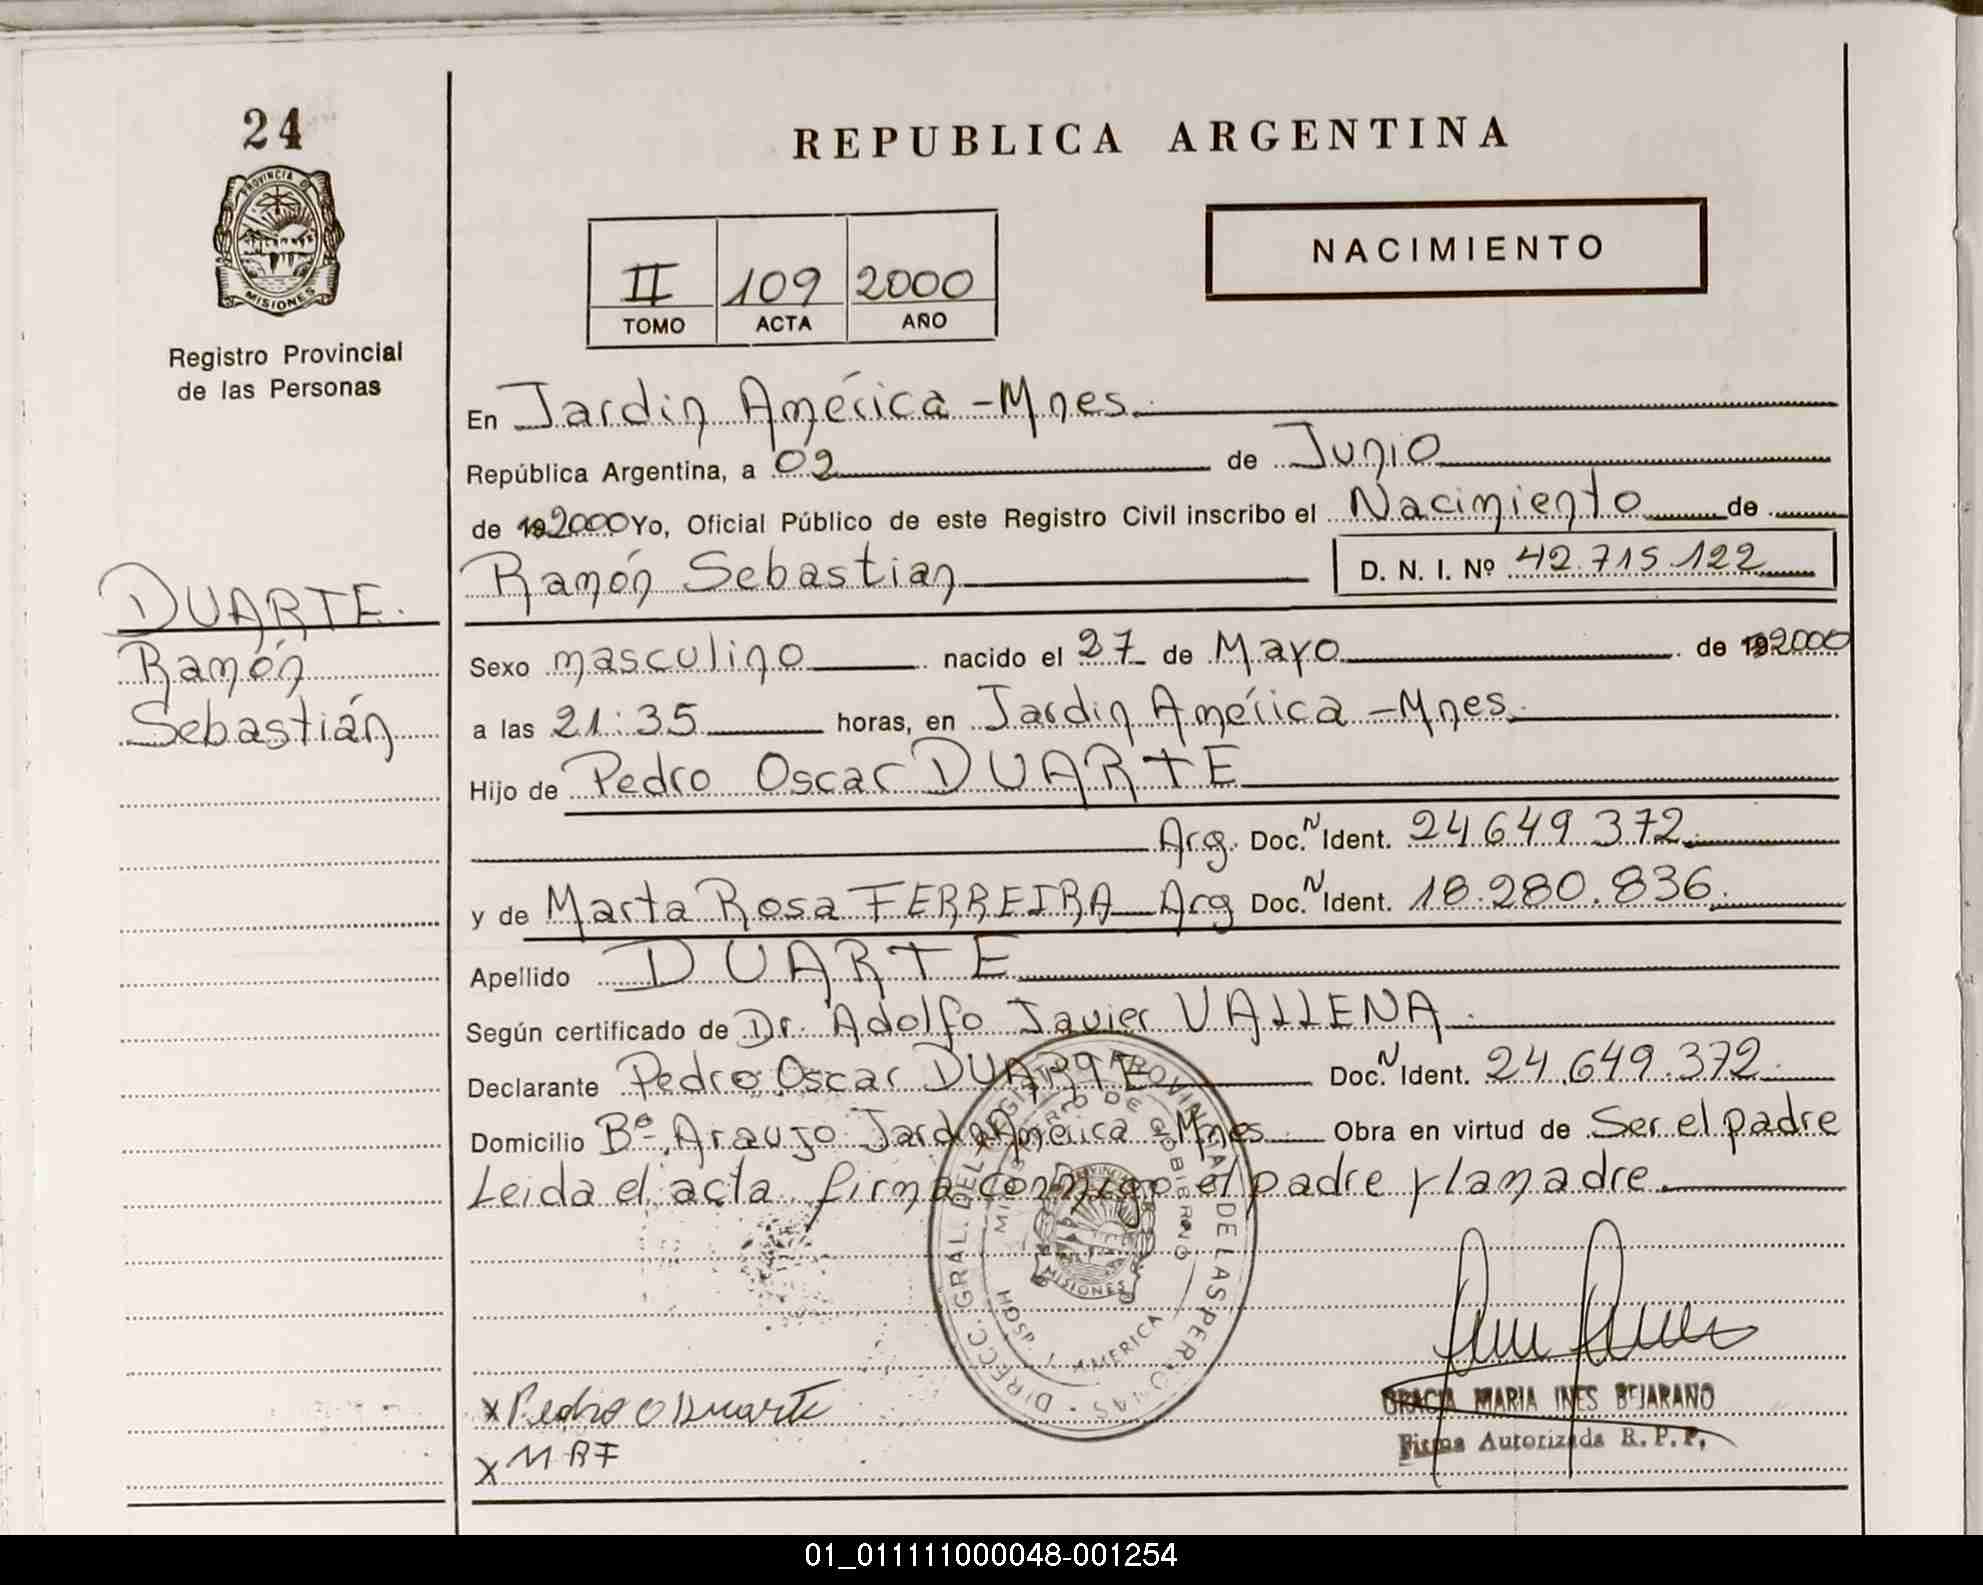 24
REPUBLICA ARGENTINA
PROVINCIA DE
MISIONES
Registro Provincial
de las Personas
NACIMIENTO
II 109 2000
TOMO ACTA AÑO
En Jardin América - Mnes.
República Argentina, a 02 de Junio
de 192000 Yo, Oficial Público de este Registro Civil inscribo el Nacimiento de
Ramón Sebastian D. N. I. Nº 42.715.122
DUARTE.
Ramón
Sebastián
Sexo masculino nacido el 27 de Mayo de 192000
a las 21:35 horas, en Jardin América - Mnes.
Hijo de Pedro Oscar DUARTE
Arg. Doc.N Ident. 24.649.372.
y de Marta Rosa FERREIRA Arg Doc.N Ident. 18.280.836.
Apellido DUARTE
Según certificado de Dr. Adolfo Javier VALLENA.
Declarante Pedro Oscar DUARTE Doc.N Ident. 24.649.372.
Domicilio Bº Araujo Jardin América - Mnes. Obra en virtud de Ser el padre
Leida el acta firma conmigo el padre y la madre.
DIRECC. GRAL. DEL REGISTRO PROVINCIAL DE LAS PERSONAS
MINISTERIO DE GOBIERNO
PROVINCIA
MISIONES
HOSP. J. AMERICA
x Pedro O Duarte
x MRF
GRACIA MARIA INES BEJARANO
Firma Autorizada R. P. P.
01_011111000048-001254